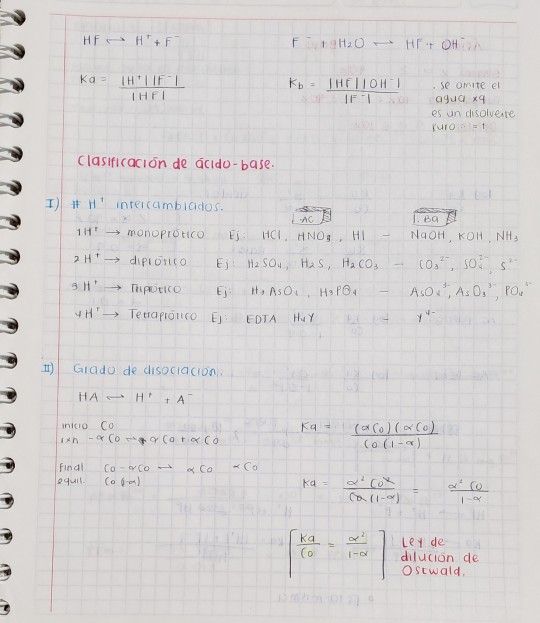 HF ⟷ H⁺ + F⁻
F⁻ + H₂O ⟷ HF + OH⁻
Ka = |H⁺||F⁻| / |HF|
Kb = |HF||OH⁻| / |F⁻|
. se omite el
agua xq
es un disolvente
puro = 1
Clasificación de ácido-base.
I) # H⁺ intercambiados.
AC
Ba
1H⁺ → monoprótico Ej: HCl, HNO₃, HI – NaOH, KOH, NH₃
2H⁺ → diprótico Ej: H₂SO₄, H₂S, H₂CO₃ – CO₃²⁻, SO₄²⁻, S²⁻
3H⁺ → Triprótico Ej: H₃AsO₄, H₃PO₄ – AsO₄³⁻, AsO₃³⁻, PO₄³⁻
4H⁺ → Tetraprótico Ej: EDTA H₄Y – Y⁴⁻
II) Grado de disociación.
HA ⟷ H⁺ + A⁻
inicio Co
rxn -αCo → αCo + αCo
Ka = (αCo)(αCo) / Co(1-α)
Final Co-αCo → αCo αCo
equil. Co(1-α)
Ka = α² Co² / Co(1-α) = α² Co / 1-α
[Ka / Co = α² / 1-α]
Ley de
dilución de
Ostwald.